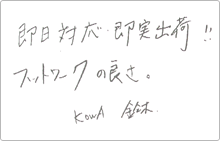 即日対応・即実出荷!!
フットワークの良さ。
KOWA 鈴木.